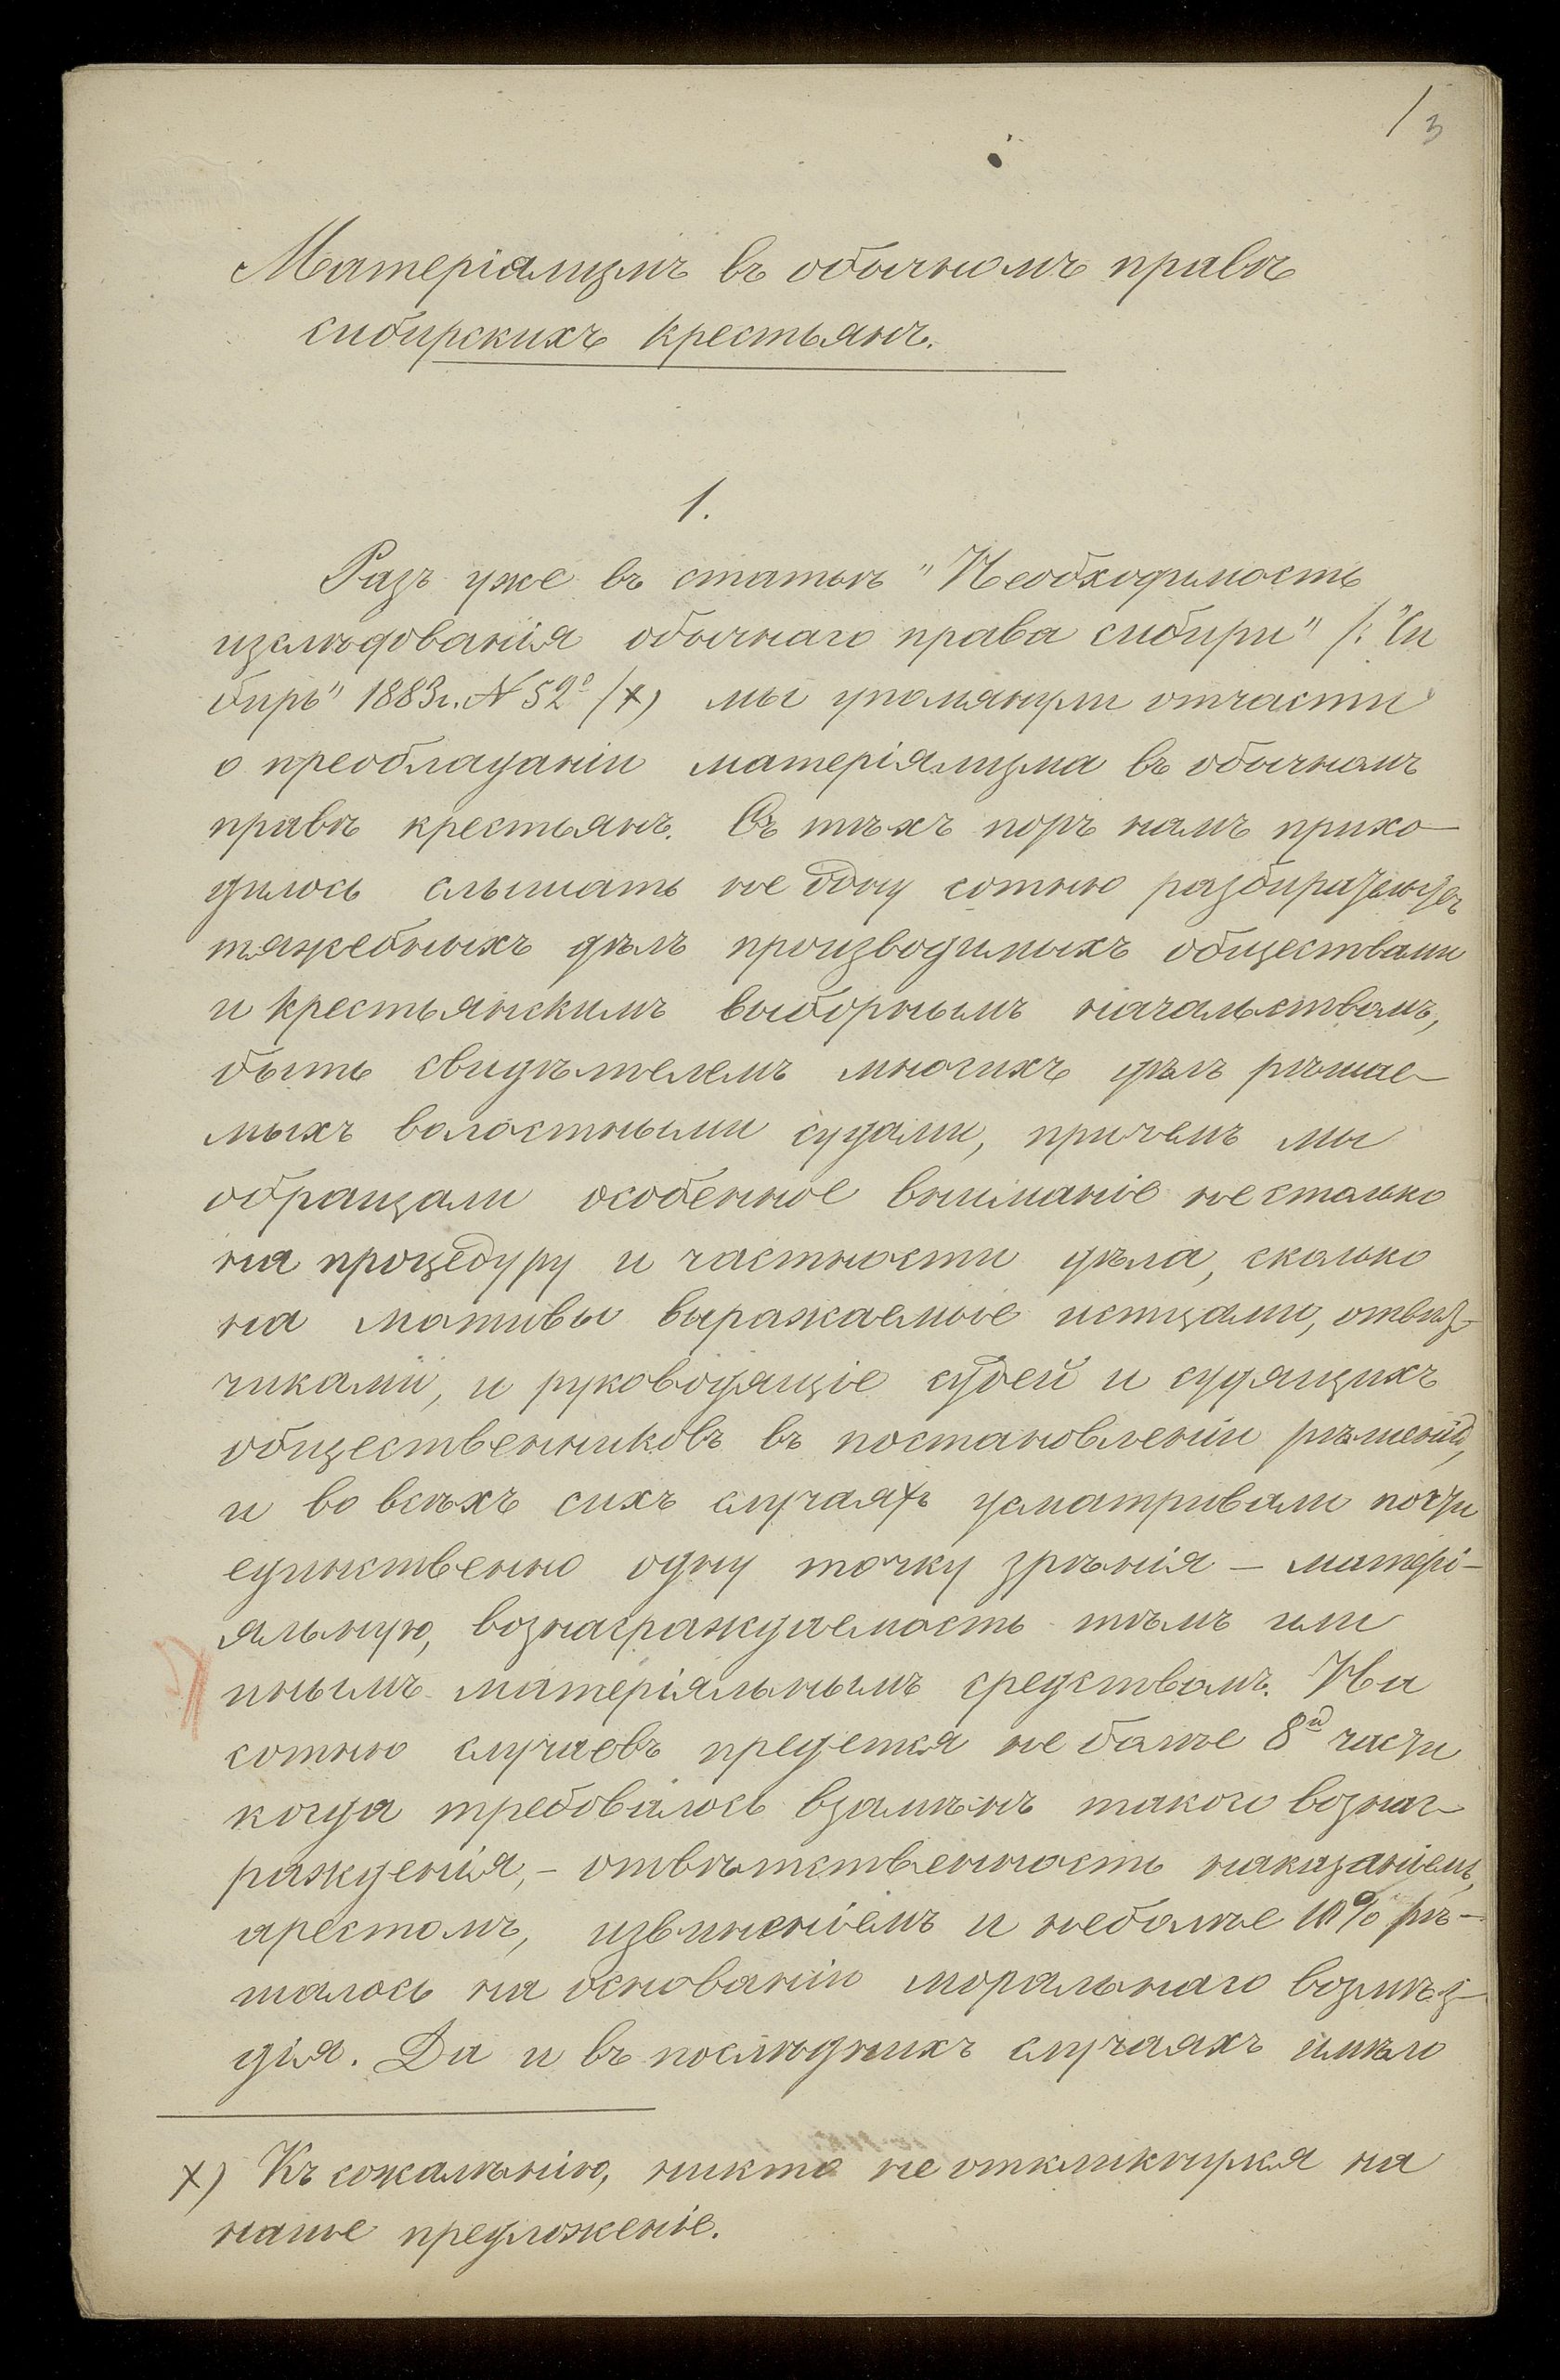 1 3
Матеріализмъ въ обычномъ правѣ
сибирскихъ крестьянъ.
1.
Разъ уже въ статьѣ "Необходимость
изслѣдованія обычнаго права сибири" /: "Си
бирь" 1883г. № 52º /х) мы упомянули отчасти
о преобладаніи матеріялизма въ обычномъ
правѣ крестьянъ. Съ тѣхъ поръ намъ прихо-
дилось слышать не одну сотню
тяжебныхъ дѣлъ производимыхъ обществами
и крестьянскимъ выборнымъ начальствомъ,
быть свидѣтелемъ многихъ дѣлъ рѣшае-
мыхъ волостными судами, причемъ мы
обращали особенное вниманіе не столько
на процедуру и частности дѣла, сколько
на мотивы выражаемые истцами, отвѣт-
чиками, и руководящіе судей и судящихъ
общественниковъ въ постановленіи рѣшеній,
и во всѣхъ сихъ случаяхъ усматривали почти
единственно одну точку зрѣнія - матері-
яльную, вознаграждаемость тѣмъ или
инымъ матеріяльнымъ средствомъ. На
сотню случаевъ придется не болѣе 8й части
когда требовалось взамѣнъ такого вознаг-
ражденія, - отвѣтственность наказаніемъ,
арестомъ, извиненіемъ и неболѣе 10% рѣ-
шалось на основаніи моральнаго возмѣз-
дія. Да и въ послѣднихъ случаяхъ имѣло
х) Къ сожалѣнію, никто не откликнулся на
наше предложеніе.